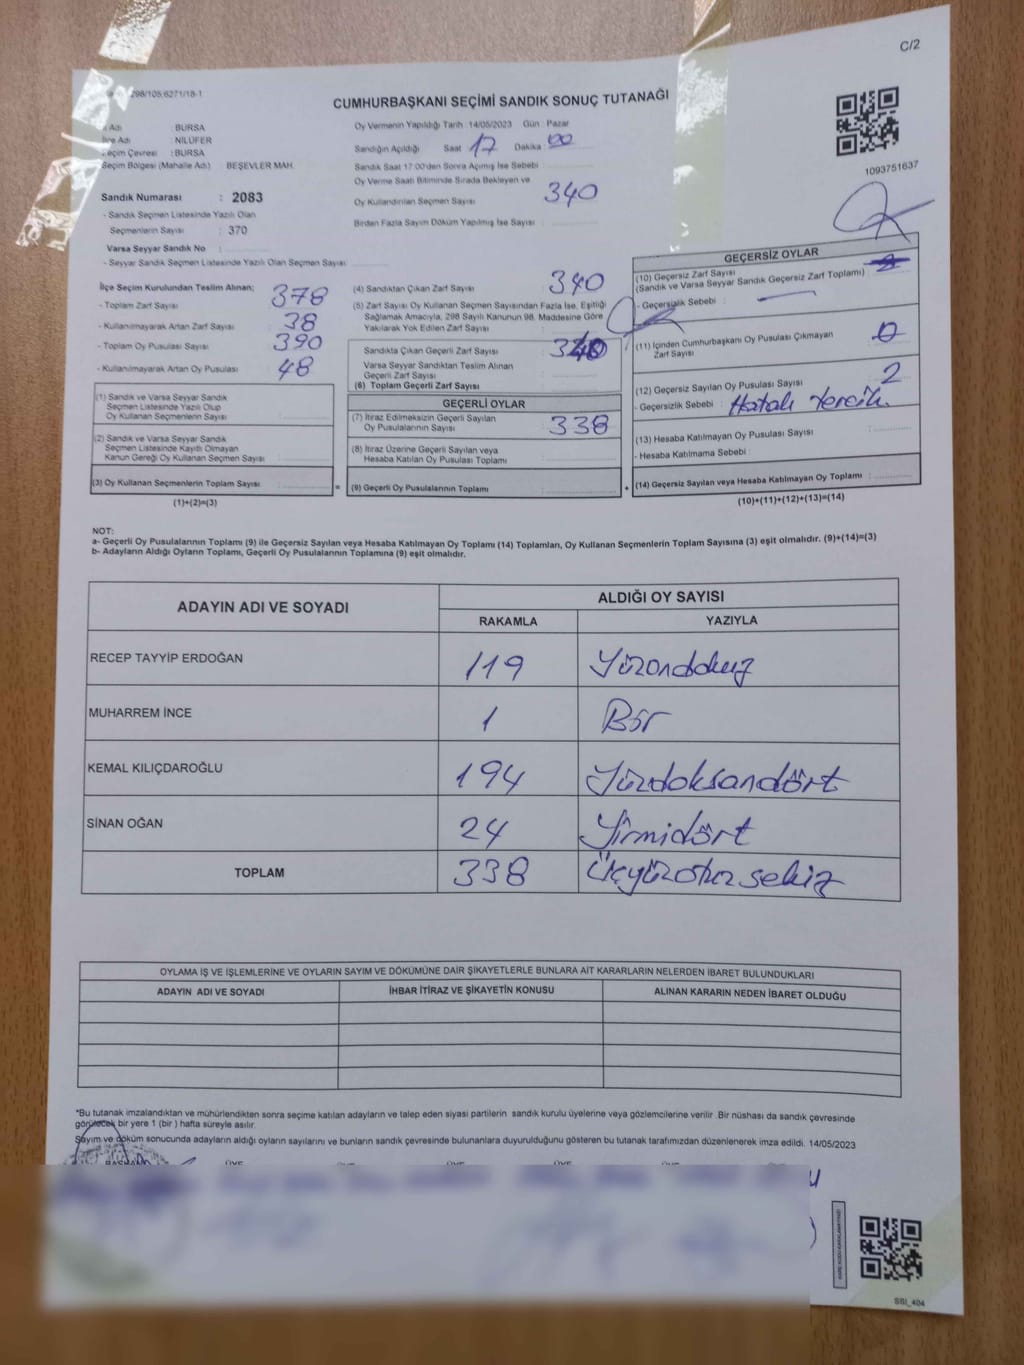 C/2
298/105;6271/18-1
CUMHURBAŞKANI SEÇİMİ SANDIK SONUÇ TUTANAĞI
İl Adı : BURSA
İlçe Adı : NİLÜFER
Seçim Çevresi : BURSA
Seçim Bölgesi (Mahalle Adı) : BEŞEVLER MAH.
Sandık Numarası : 2083
- Sandık Seçmen Listesinde Yazılı Olan
Seçmenlerin Sayısı : 370
Varsa Seyyar Sandık No :
- Seyyar Sandık Seçmen Listesinde Yazılı Olan Seçmen Sayısı :
Oy Vermenin Yapıldığı Tarih : 14/05/2023 Gün : Pazar
Sandığın Açıldığı Saat : 17 Dakika : 00
Sandık Saat 17:00'den Sonra Açılmış İse Sebebi :
Oy Verme Saati Bitiminde Sırada Bekleyen ve
Oy Kullandırılan Seçmen Sayısı : 340
Birden Fazla Sayım Döküm Yapılmış İse Sayısı :
1093751637
İlçe Seçim Kurulundan Teslim Alınan;
- Toplam Zarf Sayısı : 378
- Kullanılmayarak Artan Zarf Sayısı : 38
- Toplam Oy Pusulası Sayısı : 390
- Kullanılmayarak Artan Oy Pusulası : 48
(1) Sandık ve Varsa Seyyar Sandık
Seçmen Listesinde Yazılı Olup
Oy Kullanan Seçmenlerin Sayısı :
(2) Sandık ve Varsa Seyyar Sandık
Seçmen Listesinde Kayıtlı Olmayan
Kanun Gereği Oy Kullanan Seçmen Sayısı :
(3) Oy Kullanan Seçmenlerin Toplam Sayısı :
(1)+(2)=(3)
=
(4) Sandıktan Çıkan Zarf Sayısı : 340
(5) Zarf Sayısı Oy Kullanan Seçmen Sayısından Fazla İse, Eşitliği
Sağlamak Amacıyla, 298 Sayılı Kanunun 98. Maddesine Göre
Yakılarak Yok Edilen Zarf Sayısı :
Sandıkta Çıkan Geçerli Zarf Sayısı : 340
Varsa Seyyar Sandıktan Teslim Alınan
Geçerli Zarf Sayısı :
(6) Toplam Geçerli Zarf Sayısı :
GEÇERLİ OYLAR
(7) İtiraz Edilmeksizin Geçerli Sayılan
Oy Pusulalarının Sayısı : 338
(8) İtiraz Üzerine Geçerli Sayılan veya
Hesaba Katılan Oy Pusulası Toplamı :
(9) Geçerli Oy Pusulalarının Toplamı :
+
GEÇERSİZ OYLAR
(10) Geçersiz Zarf Sayısı
(Sandık ve Varsa Seyyar Sandık Geçersiz Zarf Toplamı) :
- Geçersizlik Sebebi :
(11) İçinden Cumhurbaşkanı Oy Pusulası Çıkmayan
Zarf Sayısı : 0
(12) Geçersiz Sayılan Oy Pusulası Sayısı : 2
- Geçersizlik Sebebi : Hatalı tercih.
(13) Hesaba Katılmayan Oy Pusulası Sayısı :
- Hesaba Katılmama Sebebi :
(14) Geçersiz Sayılan veya Hesaba Katılmayan Oy Toplamı :
(10)+(11)+(12)+(13)=(14)
NOT:
a- Geçerli Oy Pusulalarının Toplamı (9) ile Geçersiz Sayılan veya Hesaba Katılmayan Oy Toplamı (14) Toplamları, Oy Kullanan Seçmenlerin Toplam Sayısına (3) eşit olmalıdır. (9)+(14)=(3)
b- Adayların Aldığı Oyların Toplamı, Geçerli Oy Pusulalarının Toplamına (9) eşit olmalıdır.
ADAYIN ADI VE SOYADI ALDIĞI OY SAYISI
RAKAMLA YAZIYLA
RECEP TAYYİP ERDOĞAN 119 Yüzondokuz
MUHARREM İNCE 1 Bir
KEMAL KILIÇDAROĞLU 194 Yüzdoksandört
SİNAN OĞAN 24 Yirmidört
TOPLAM 338 Üçyüzotuzsekiz
OYLAMA İŞ VE İŞLEMLERİNE VE OYLARIN SAYIM VE DÖKÜMÜNE DAİR ŞİKAYETLERLE BUNLARA AİT KARARLARIN NELERDEN İBARET BULUNDUKLARI
ADAYIN ADI VE SOYADI İHBAR İTİRAZ VE ŞİKAYETİN KONUSU ALINAN KARARIN NEDEN İBARET OLDUĞU
*Bu tutanak imzalandıktan ve mühürlendikten sonra seçime katılan adayların ve talep eden siyasi partilerin sandık kurulu üyelerine veya gözlemcilerine verilir. Bir nüshası da sandık çevresinde
görülecek bir yere 1 (bir) hafta süreyle asılır.
Sayım ve döküm sonucunda adayların aldığı oyların sayılarını ve bunların sandık çevresinde bulunanlara duyurulduğunu gösteren bu tutanak tarafımızdan düzenlenerek imza edildi. 14/05/2023
BAŞKAN ÜYE ÜYE ÜYE ÜYE ÜYE
SBI_404